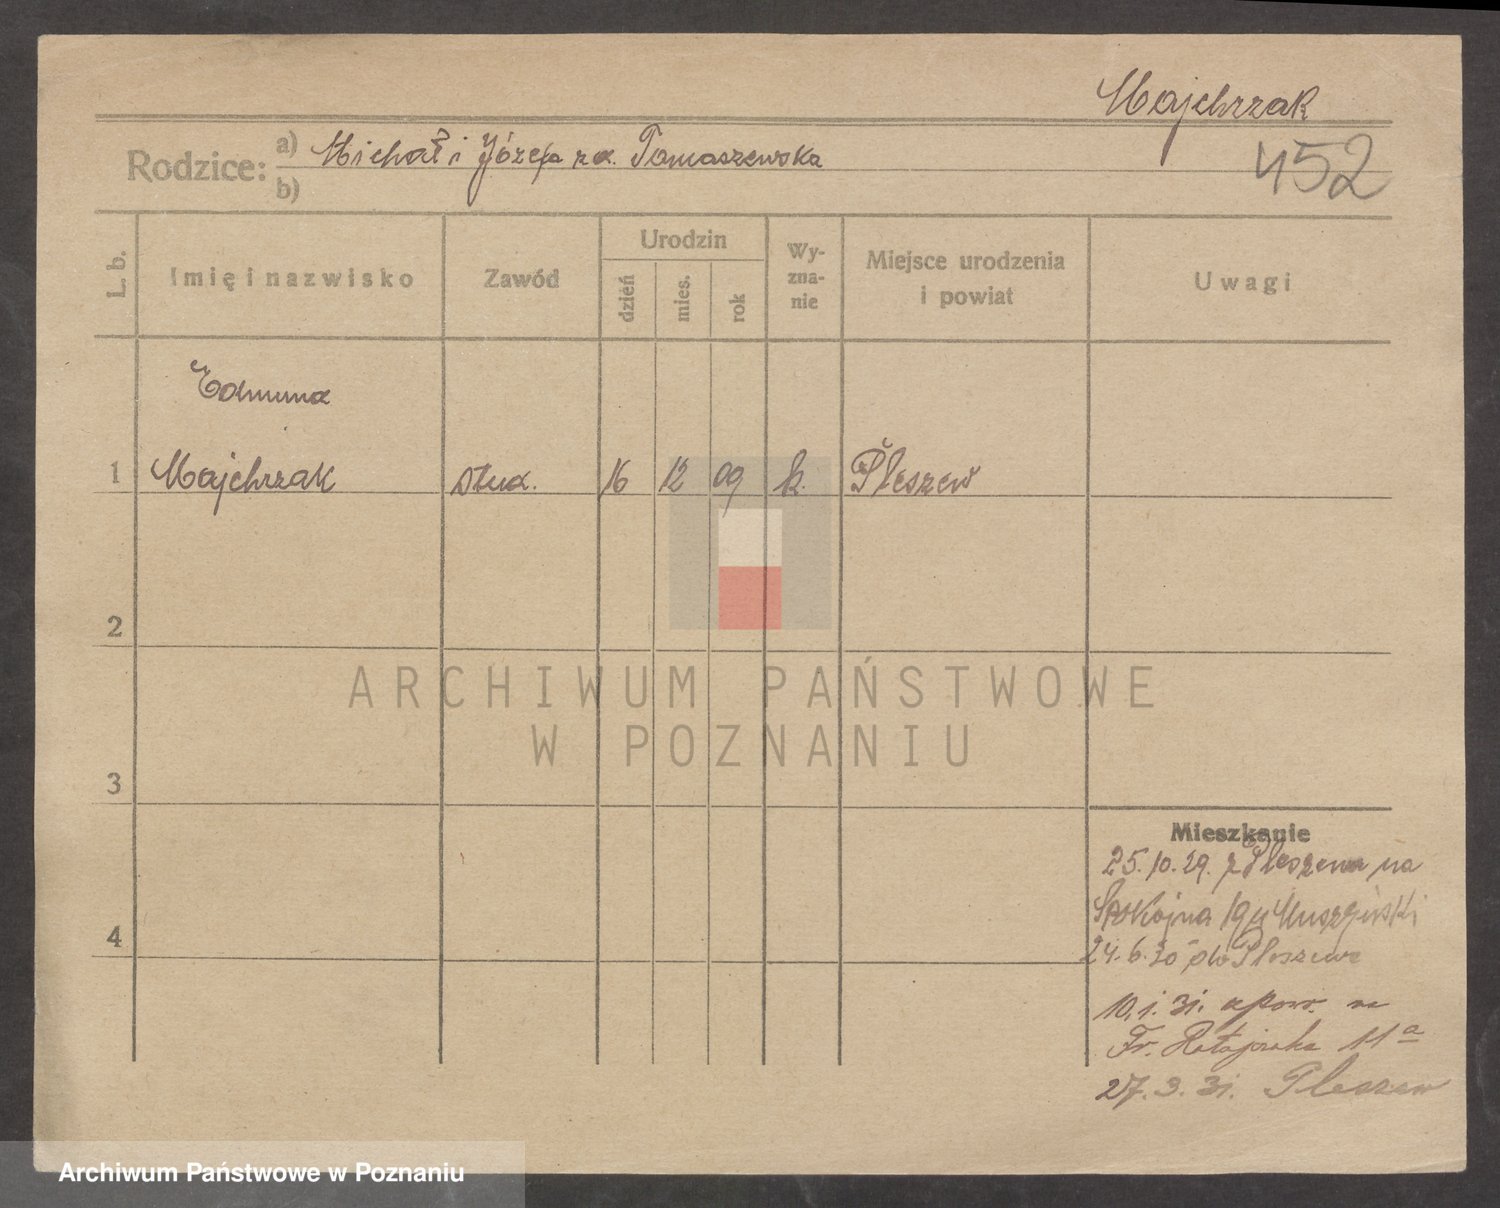 Majchrzak
452
Rodzice: a) Michał i Józefa zd. Tomaszewska
b)
L. b.
Imię i nazwisko
Zawód
Urodzin
dzień
mies.
rok
Wy-
zna-
nie
Miejsce urodzenia
i powiat
Uwagi
Edmund
1 Majchrzak stud. 16 12 09 k. Pleszew
2
3
4
Mieszkanie
25.10.29. z Pleszewa na
Spokojna 19 u
24.6.30 do Pleszewa
10.1.31. z pow. na
Fr. Ratajczaka 11a
27.3.31. Pleszew
ARCHIWUM PAŃSTWOWE
W POZNANIU
Archiwum Państwowe w Poznaniu